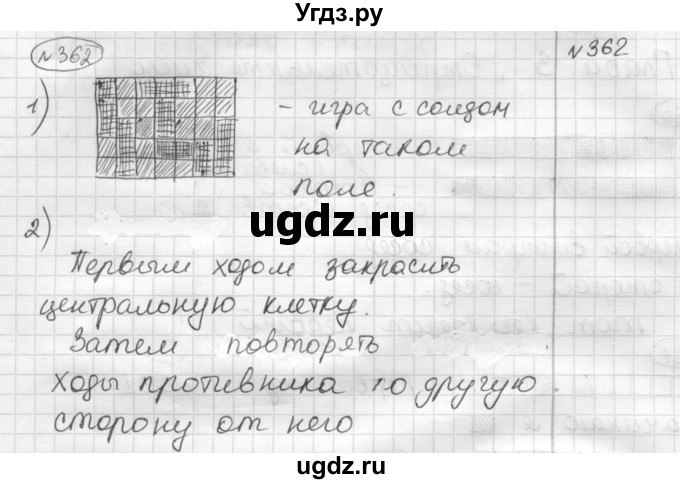 Угдз.ру
№362
№362
1)
- игра с солдом
на таком
поле.
ugdz.ru
2)
Первым ходом закрасить
центральную клетку.
Затем повторять
ходы противника по другую
сторону от него
ugdz.ru